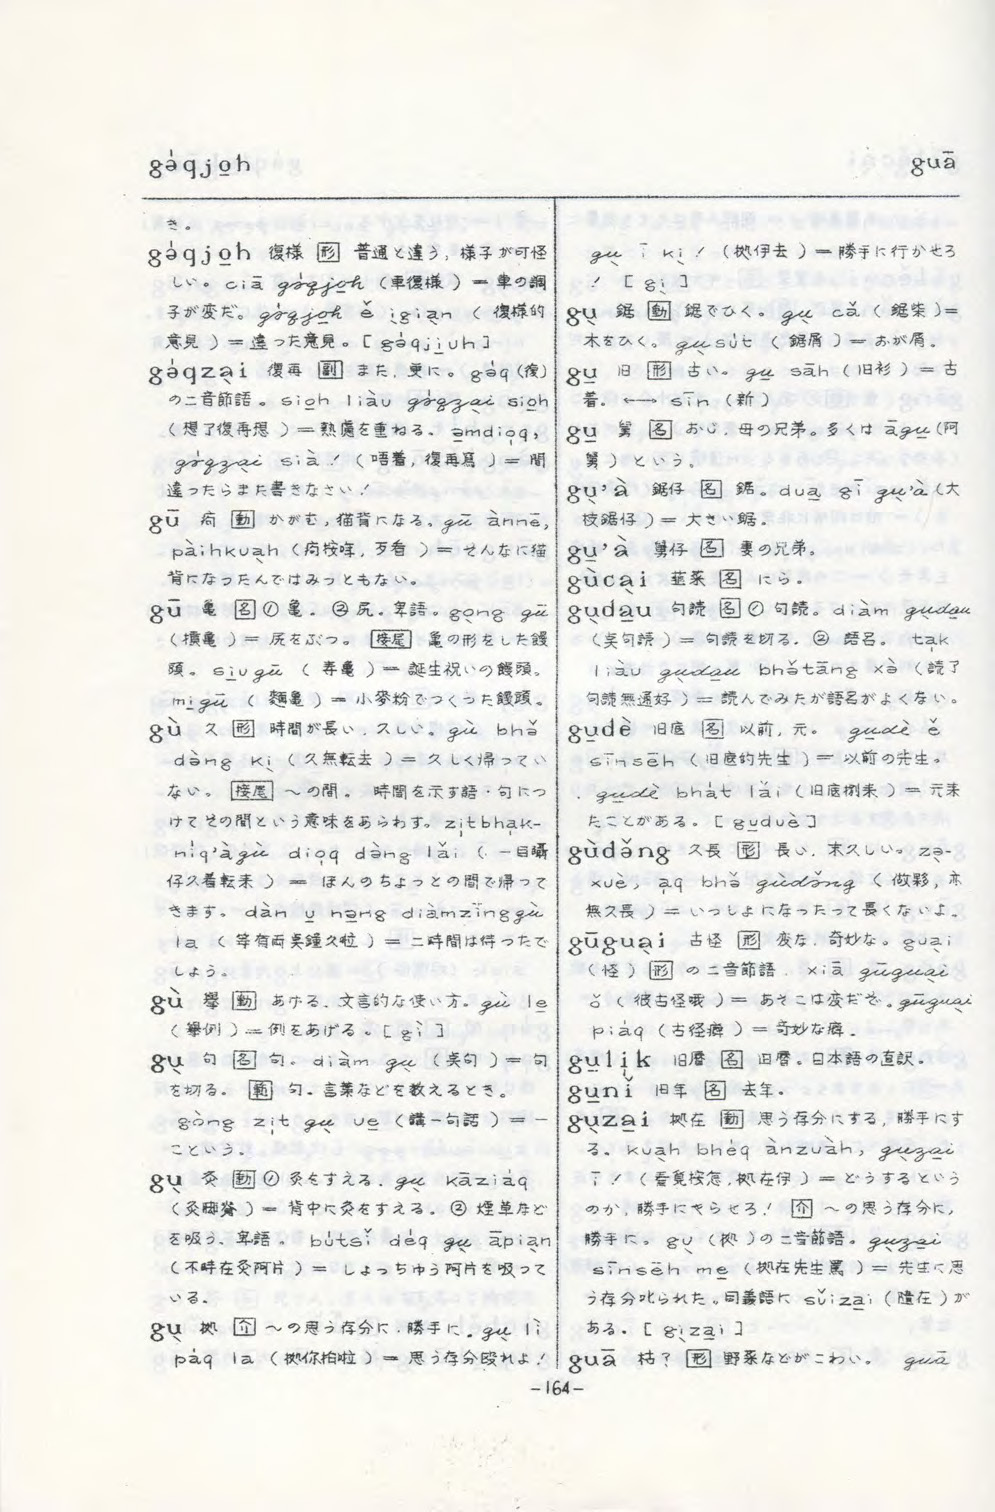 gə̍qjo̲h
guā
き。
gə̍qjo̲h 復様 形 普通と違う, 様子が可怪
しい。ciā gə̍qjo̲h (車復様) = 車の調
子が変だ。gə̍qjo̲h ě ị̀giạn (復様的
意見) = 違った意見。[gə̍qjịuh]
gə̍qzại 復再 副 また, 更に。gə̍q (復)
の二音節語。siọh liàu gə̍qzại siọh
(想了復再想) = 熟慮を重ねる。
gə̍qzại sià! (唔着, 復再寫) = 間
違ったらまた書きなさい!
gū 痀 動 かがむ, 猫背になる。gū ànnē,
pàihkuạh (痀按哖, 歹看) = そんなに猫
背になったんではみっともない。
gū 亀 名 ① 亀。② 尻。卑語。gòng gū
(摃亀) = 尻をぶつ。接尾 亀の形をした饅
頭。si̲u gū (寿亀) = 誕生祝いの饅頭。
mi̲gū (麵亀) = 小麥粉でつくった饅頭。
gù 久 形 時間が長い, 久しい。gù bhǒ
dòng kị (久無転去) = 久しく帰ってい
ない。接尾 ～の間。時間を示す語・句につ
けてその間という意味をあらわす。zịtbhạk-
nịq'àgù diọq dòng lǎi (一目𥍉
仔久着転来) = ほんのちょっとの間で帰って
きます。dàn u̲ no̲ng diàmzīnggù
la (等有両奌鐘久啦) = 二時間は待ったで
しょう。
gù 擧 動 あげる。文言的な使い方。gù le̲
(擧例) = 例をあげる。[gì]
gụ 句 名 句。diàm gụ (奌句) = 句
を切る。範 句。言葉などを教えるとき。
gòng zịt gụ ue̲ (講一句話) = 一
こという。
gụ 灸 動 ① 灸をすえる。gụ kāzia̍q
(灸脚脊) = 背中に灸をすえる。② 煙草など
を吸う。卑語。bu̍tsǐ de̍q gụ āpiạn
(不時在灸阿片) = しょっちゅう阿片を吸って
いる。
gụ 拠 介 ～の思う存分に, 勝手に。gụ lì
pa̍q la (拠你拍啦) = 思う存分殴れよ!
gụ ī kị! (拠伊去) = 勝手に行かせろ
! [gị]
gụ 鋸 動 鋸でひく。gụ cǎ (鋸柴) =
木をひく。gụsu̍t (鋸屑) = おが屑。
gu̲ 旧 形 古い。gu̲ sāh (旧衫) = 古
着。←→ sīn (新)
gu̲ 舅 名 おじ, 母の兄弟。多くは āgu̲ (阿
舅) という。
gụ'à 鋸仔 名 鋸。dua̲ gī gụ'à (大
枝鋸仔) = 大きい鋸。
gu̲'à 舅仔 名 妻の兄弟。
gùcại 韮菜 名 にら。
gụdạu 句読 名 ① 句読。diàm gụdạu
(奌句読) = 句読を切る。② 語呂。ta̍k
liàu gụdạu bhǒtāng xò (読了
句読無通好) = 読んでみたが語呂がよくない。
gu̲dè 旧底 名 以前, 元。gu̲dè ě
sīnsēh (旧底的先生) = 以前の先生。
gu̲dè bha̍t lǎi (旧底捌来) = 元来
たことがある。[gu̲duè]
gùdǒng 久長 形 長い, 末久しい。zọ-
xuè, ạq bhǒ gùdǒng (做夥, 亦
無久長) = いっしょになったって長くないよ。
gūguại 古怪 形 変な, 奇妙な。guại
(怪) 形 の二音節語。xiā gūguại
ò (彼古怪哦) = あそこは変だぞ。gūguại
pia̍q (古怪癖) = 奇妙な癖。
gu̲lịk 旧暦 名 旧暦。日本語の直訳。
gu̲nǐ 旧年 名 去年。
gụzại 拠在 動 思う存分にする, 勝手にす
る。kuạh bhe̍q ànzuàh, gụzại
ī! (看覓按怎, 拠在伊) = どうするという
のか, 勝手にやらせろ! 介 ～の思う存分に,
勝手に。gụ (拠) の二音節語。gụzại
sīnsēh me̲ (拠在先生罵) = 先生に思
う存分叱られた。同義語に sǔizại (隨在) が
ある。[gịzại]
guā 枯? 形 野菜などがこわい。guā
-164-